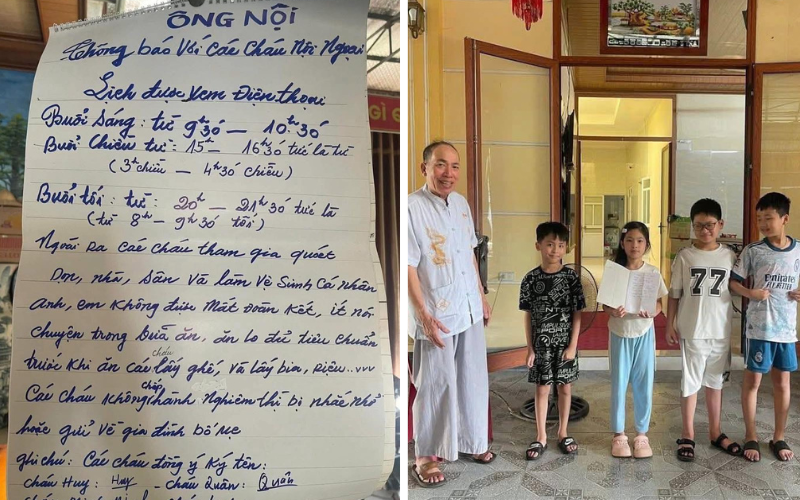 ÔNG NỘI
Thông báo Với các Cháu Nội Ngoại
Lịch được xem Điện thoại
Buổi Sáng: từ 9h30 – 10h30
Buổi Chiều từ: 15h – 16h30 tức là từ
(3h chiều – 4h30 chiều)
Buổi tối: từ: 20h – 21h30 tức là
(từ 8h – 9h30 tối)
Ngoài ra các cháu tham gia quét
Dọn, nhà, Sân Và làm Vệ Sinh Cá nhân
Anh, em Không được Mất Đoàn Kết, ít nói
chuyện trong Bữa ăn, ăn lo đủ tiêu chuẩn
trước Khi ăn các cháu lấy ghế, Và lấy bia, Rượu...vvv
Các cháu Không chấp hành Nghiêm thì bị nhắc nhở
hoặc gửi Về gia đình bố Mẹ
ghi chú: Các cháu đồng ý Ký tên:
cháu Huy: Huy – cháu Quân: Quân
77
Emirates